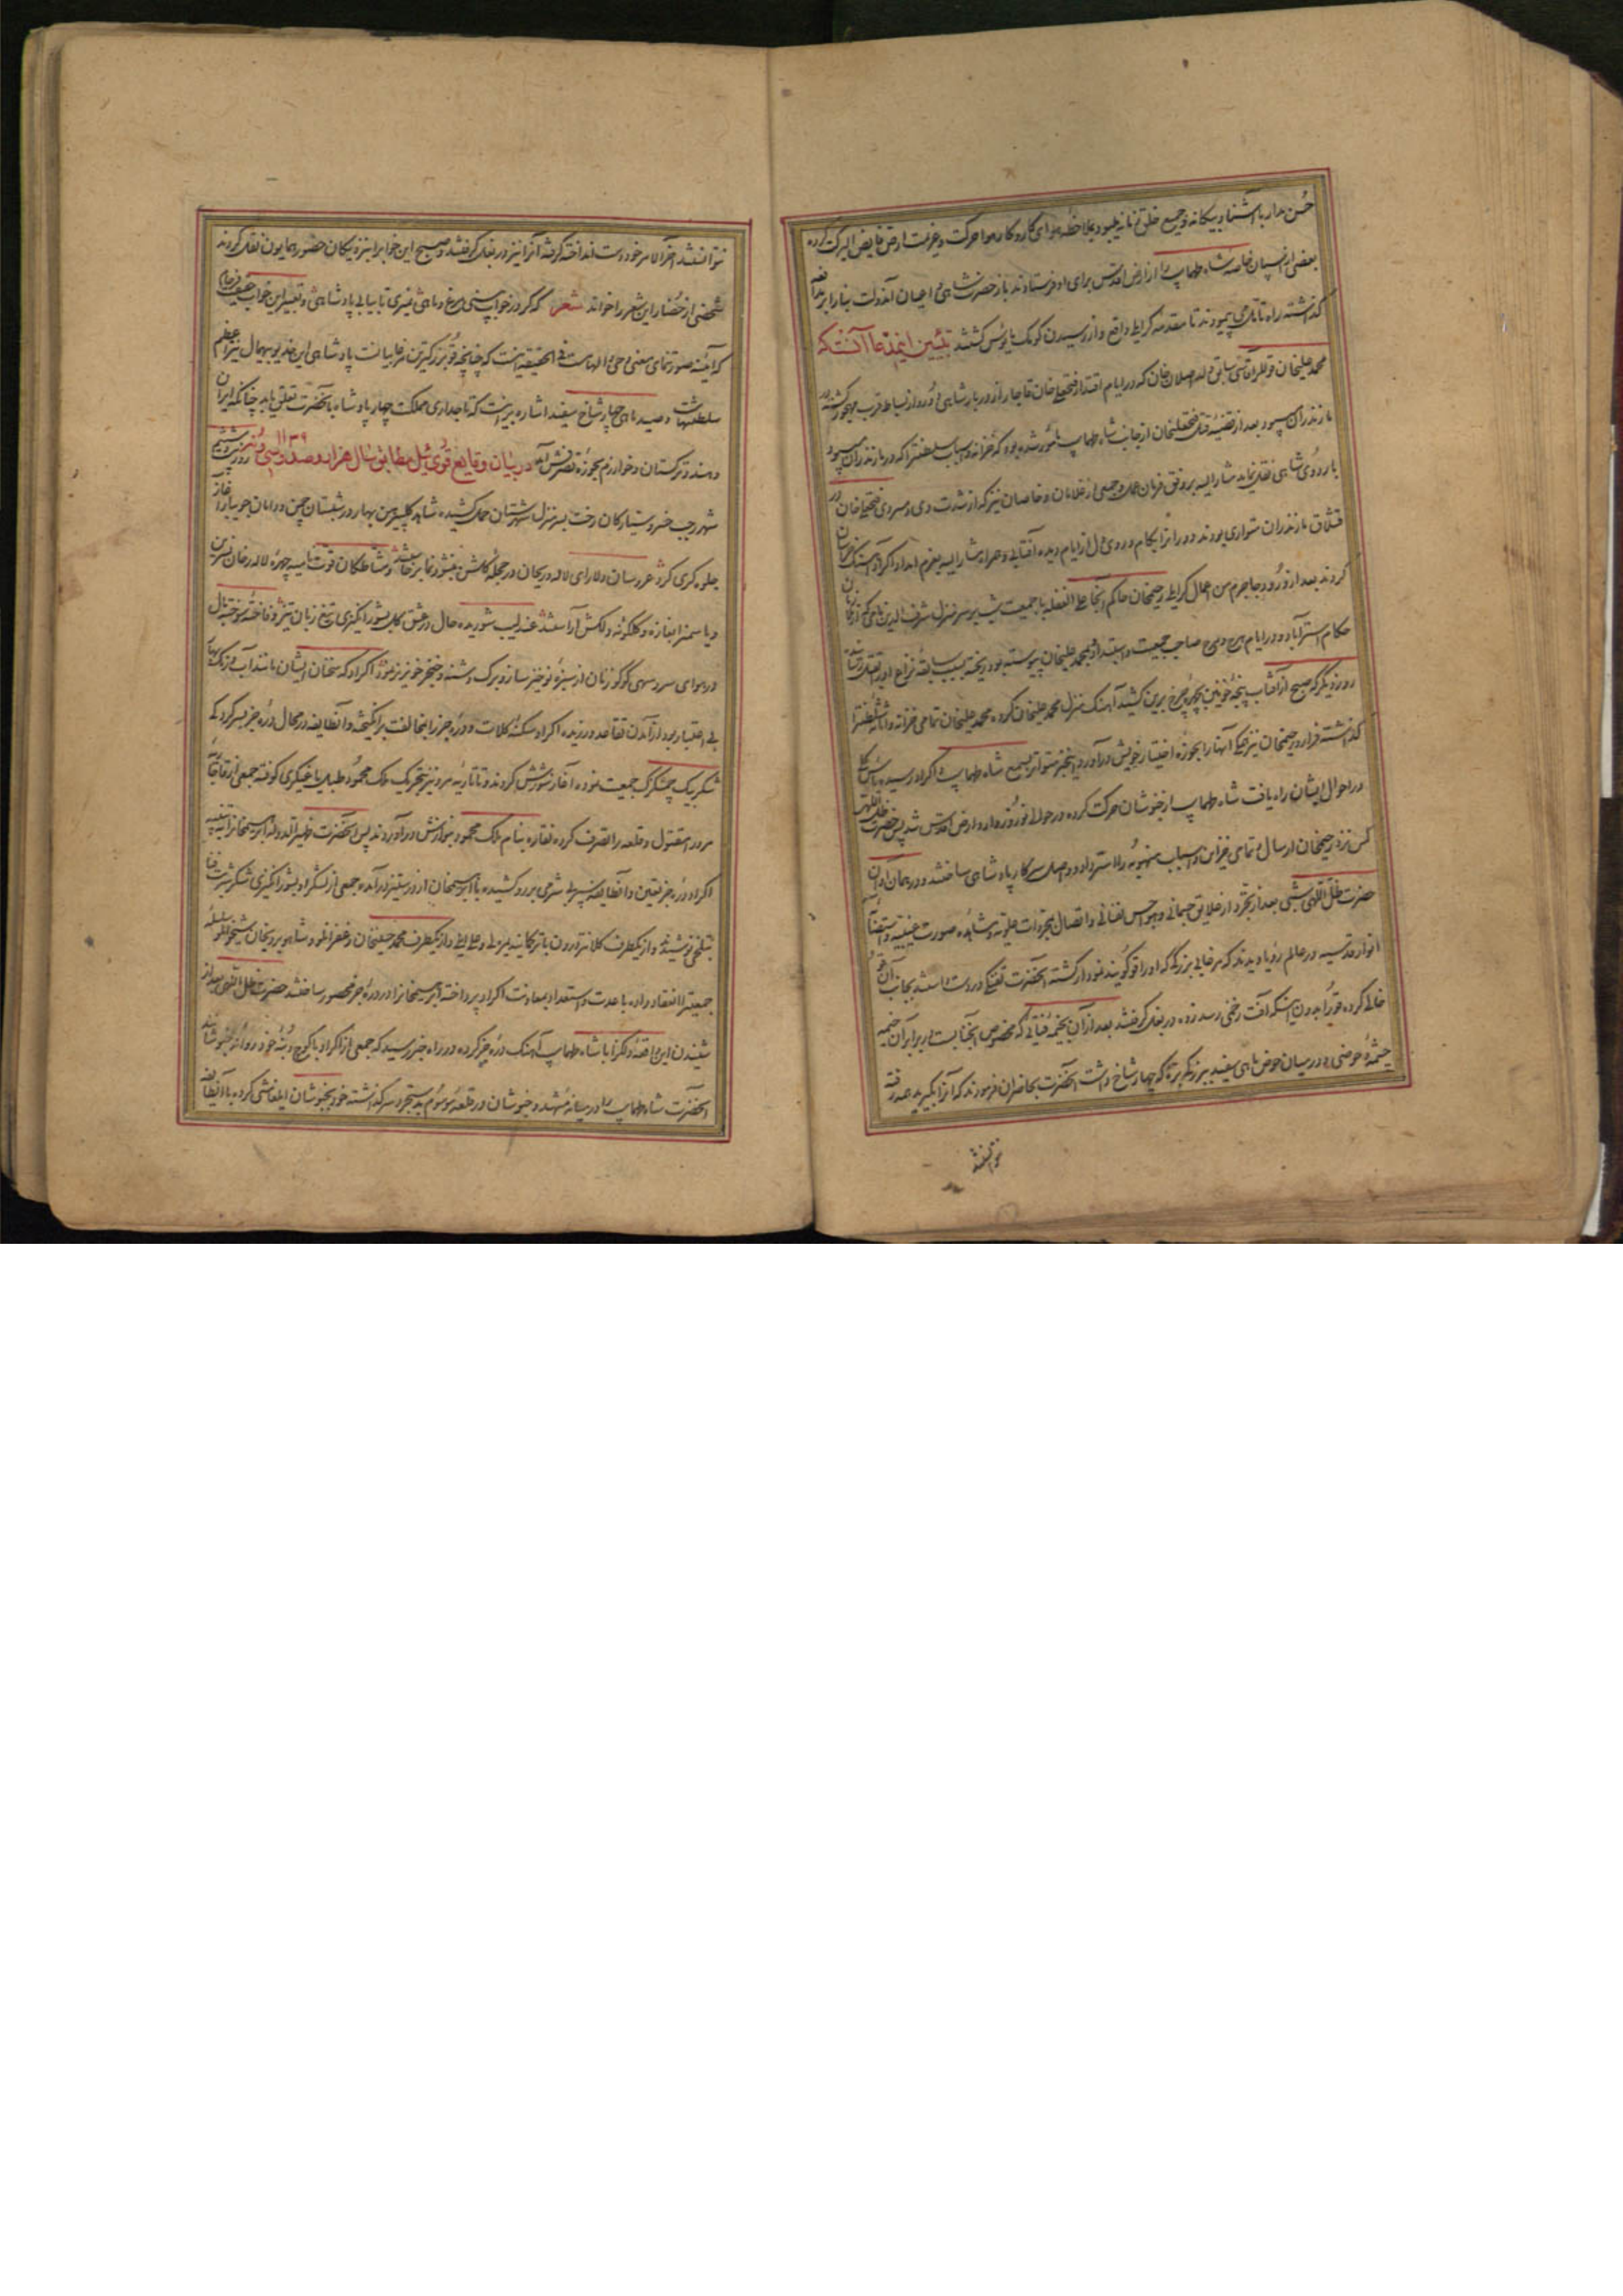 حسن مدار با آشنا و بیکانه و جمیع خلق زمانه میبود بملاحظه هوای کار و کار هوا حرکت و عزیمت ارض فایض البرکت کرده
بعضی از اسپان خاصه شاه طهماسب را از ارض اقدس برای او فرستادند باز حضرت شاهی و اعیان آندولت بنا را بر
کذاشته راه تا تل می پیمودند تا مقدمه کرایلی واقع و از رسیدن کومک مأیوس کشتند تبیین اینمدعا آنستکه
محمد علیخان قوللر آقاسی سابق ولد اصلان خان که در ایام اقتدار فتحعلیخان قاجار از دربار شاهی دور و از بساط قرب مهجور کشته در
مازندران میبود بعد از قضیه قتل فتحعلیخان از جانب شاه طهماسب مأمور شده بود که خزانه و اسباب سلطنتی را که در مازندران میبود
باردوی شاهی نقل نماید مشار الیه بر وفق فرمان عمل و جمعی از غلامان و خاصان نیز که از شدت دی و سردی فتحعلیخان در
قشلاق مازندران متواری بودند و در انزا بکام و روی دل از ایام دیده آفتابی و همراه مشار الیه بعزم امداد اکراد آهنک خراسان
کردند بعد از ورود جاجرم من اعمال کرایلی رحیمخان حاکم آنجا علی الغفله با جمعیت شب بر سر منزل شرف الدین
حکام استرآباد و در ایام هرج و مرج صاحب جمعیت و استبداد و بمحمد علیخان پیوسته بود ریخته بسبب سابقه نزاع او را بقتل رسانید
روز دیکر که صبح از آفتاب پنجه خونین بچهره چرخ برین کشید آهنک منزل محمد علیخان کرده محمد علیخان تمامی خزانه و اثاثه سلطنت را
کذاشته فرار و رحیمخان نیز همکی آنها را بحوزه اختیار خویش درآورد اینخبر متواتر بسمع شاه طهماسب و اکراد رسیده یأس کلی
در احوال ایشان راه یافت شاه طهماسب از خبوشان حرکت کرده در حوالی نوروز وارد ارض اقدس شد پس حضرت ظل اللهی
کس نزد رحیمخان ارسال و تمامی خزاین و اسباب منهوبه را استرداد و واصل سرکار پادشاهی ساختند و در همان اوان
حضرت ظل اللهی شبی بعد از تجرد از علایق جسمانی و هواجس نفسانی و اتصال بمجردات علویه و مشاهده صورت غیبیه و استضائه
انوار قدسیه در عالم رؤیا دیدند که مرغابی بزرکی که او را قو کویند نمودار کشته آنحضرت تفنکی در دست داشتند بجانب آن قو
خالی کرده قو را بدون اینکه آفت زخمی رسد زده در بغل کرفتند بعد از آن بخیمه قناتی که مخصوص آنجنابست در برابر آن خیمه
چشمه حوضی و در میان حوض ماهی سفید بزرکی بود که چهار شاخ داشت آنحضرت بحاضران فرمودند که آنرا بکیرید هر قدر
نتوانستند
نتوانستند آخر الامر خود دست انداخته کرفته آنرا نیز در بغل کرفتند و صبح این خواب را بنزدیکان حضور همایون نقل کردند
شخصی از حضار این شعر را خواند شعر که کر در خواب بینی مرغ و ماهی نمیری تا بیابی پادشاهی و تعبیر این خواب حقیقت فرجام
که آینه صورتنمای معنی وحی و الهامست فی الحقیقه اینست که چنانچه قو بزرکترین مرغابیانست پادشاهی این خدیو بیهمال نیز اعظم
سلطنتهاست و صید ماهی چهار شاخ سفید اشاره بر اینست که تاجداری مملکت چهار پادشاه بآنحضرت تعلق یابد چنانکه ایران
و هند و ترکستان و خوارزم بحوزه تصرفش آمد در بیان وقایع قوی ئیل مطابق سال هزار و صد و سی و نه ۱۱۳۹ روز بیست و ششم
شهر رجب خسرو ستارکان رخت بسر منزل شهرستان حمل کشیده شاهد کلپیرهن بهار در شبستان چمن و دامان جویبار آغاز
جلوه کری کرد عروسان دلارای لاله و ریحان در حجله کلشن بنشو و نما برخاستند و مشاطکان قوت نامیه چهره لاله رخان نسرین
و یاسمن را بغازه و کلکونه دلکش آراستند عندلیب شوریده حال در عشق کل بشور انکیزی تیغ زبان تیز و فاخته سوخته دل
در هوای سرو سهی کوکو زنان از سبزه نوخیز ساز و برک دشنه و خنجر خونریز نمود اکراد که سخنان ایشان مانند آب و رنک بهار
بی اعتبار بود از آمدن تقاعد ورزیده اکراد سکنه کلات و دره جز را بمخالفت برانکیختند و آنطایفه در محال دره جز بسر کردکی
شکر بیک چمشکزک جمعیت نموده آغاز شورش کردند و تاتاریه مرو نیز بتحریک ملک محمود طبل یاغیکری کوفته جمعی از قاجار
مرو را مقتول و قلعه را تصرف کرده نقاره بنام ملک محمود بنوازش درآوردند پس آنحضرت ظهیر الدوله ابراهیمخان را بتنبیه
اکراد دره جز تعیین و آنطایفه سپر بی شرمی بر رو کشیده با ابراهیمخان از در ستیز درآمده جمعی از لشکر او بشور انکیزی شکر شربت فنا
بتلخی نوشیدند و از یکطرف کلانتر درون با ترکمانیه یمرلی و علی ایلی و از یکطرف محمد حسینخان و جعفر قلی و شاهویردیخان شیخوانلو سلسله
جمعیت را انعقاد داده با عدت و استعداد بمعاونت اکراد پرداخته ابراهیمخان را در دره جز محصور ساختند حضرت ظل اللهی بعد از
شنیدن این واقعه دلکزا با شاه طهماسب آهنک دره جز کرده در راه خبر رسید که جمعی از اکراد با کوچ و بنه خود روانه خبوشانند
آنحضرت شاه طهماسب را در میانه مشهد و خبوشان در قلعه موسوم بدستجرد سر کذاشته خود بخبوشان ایلغامشی کرده با آنطایفه